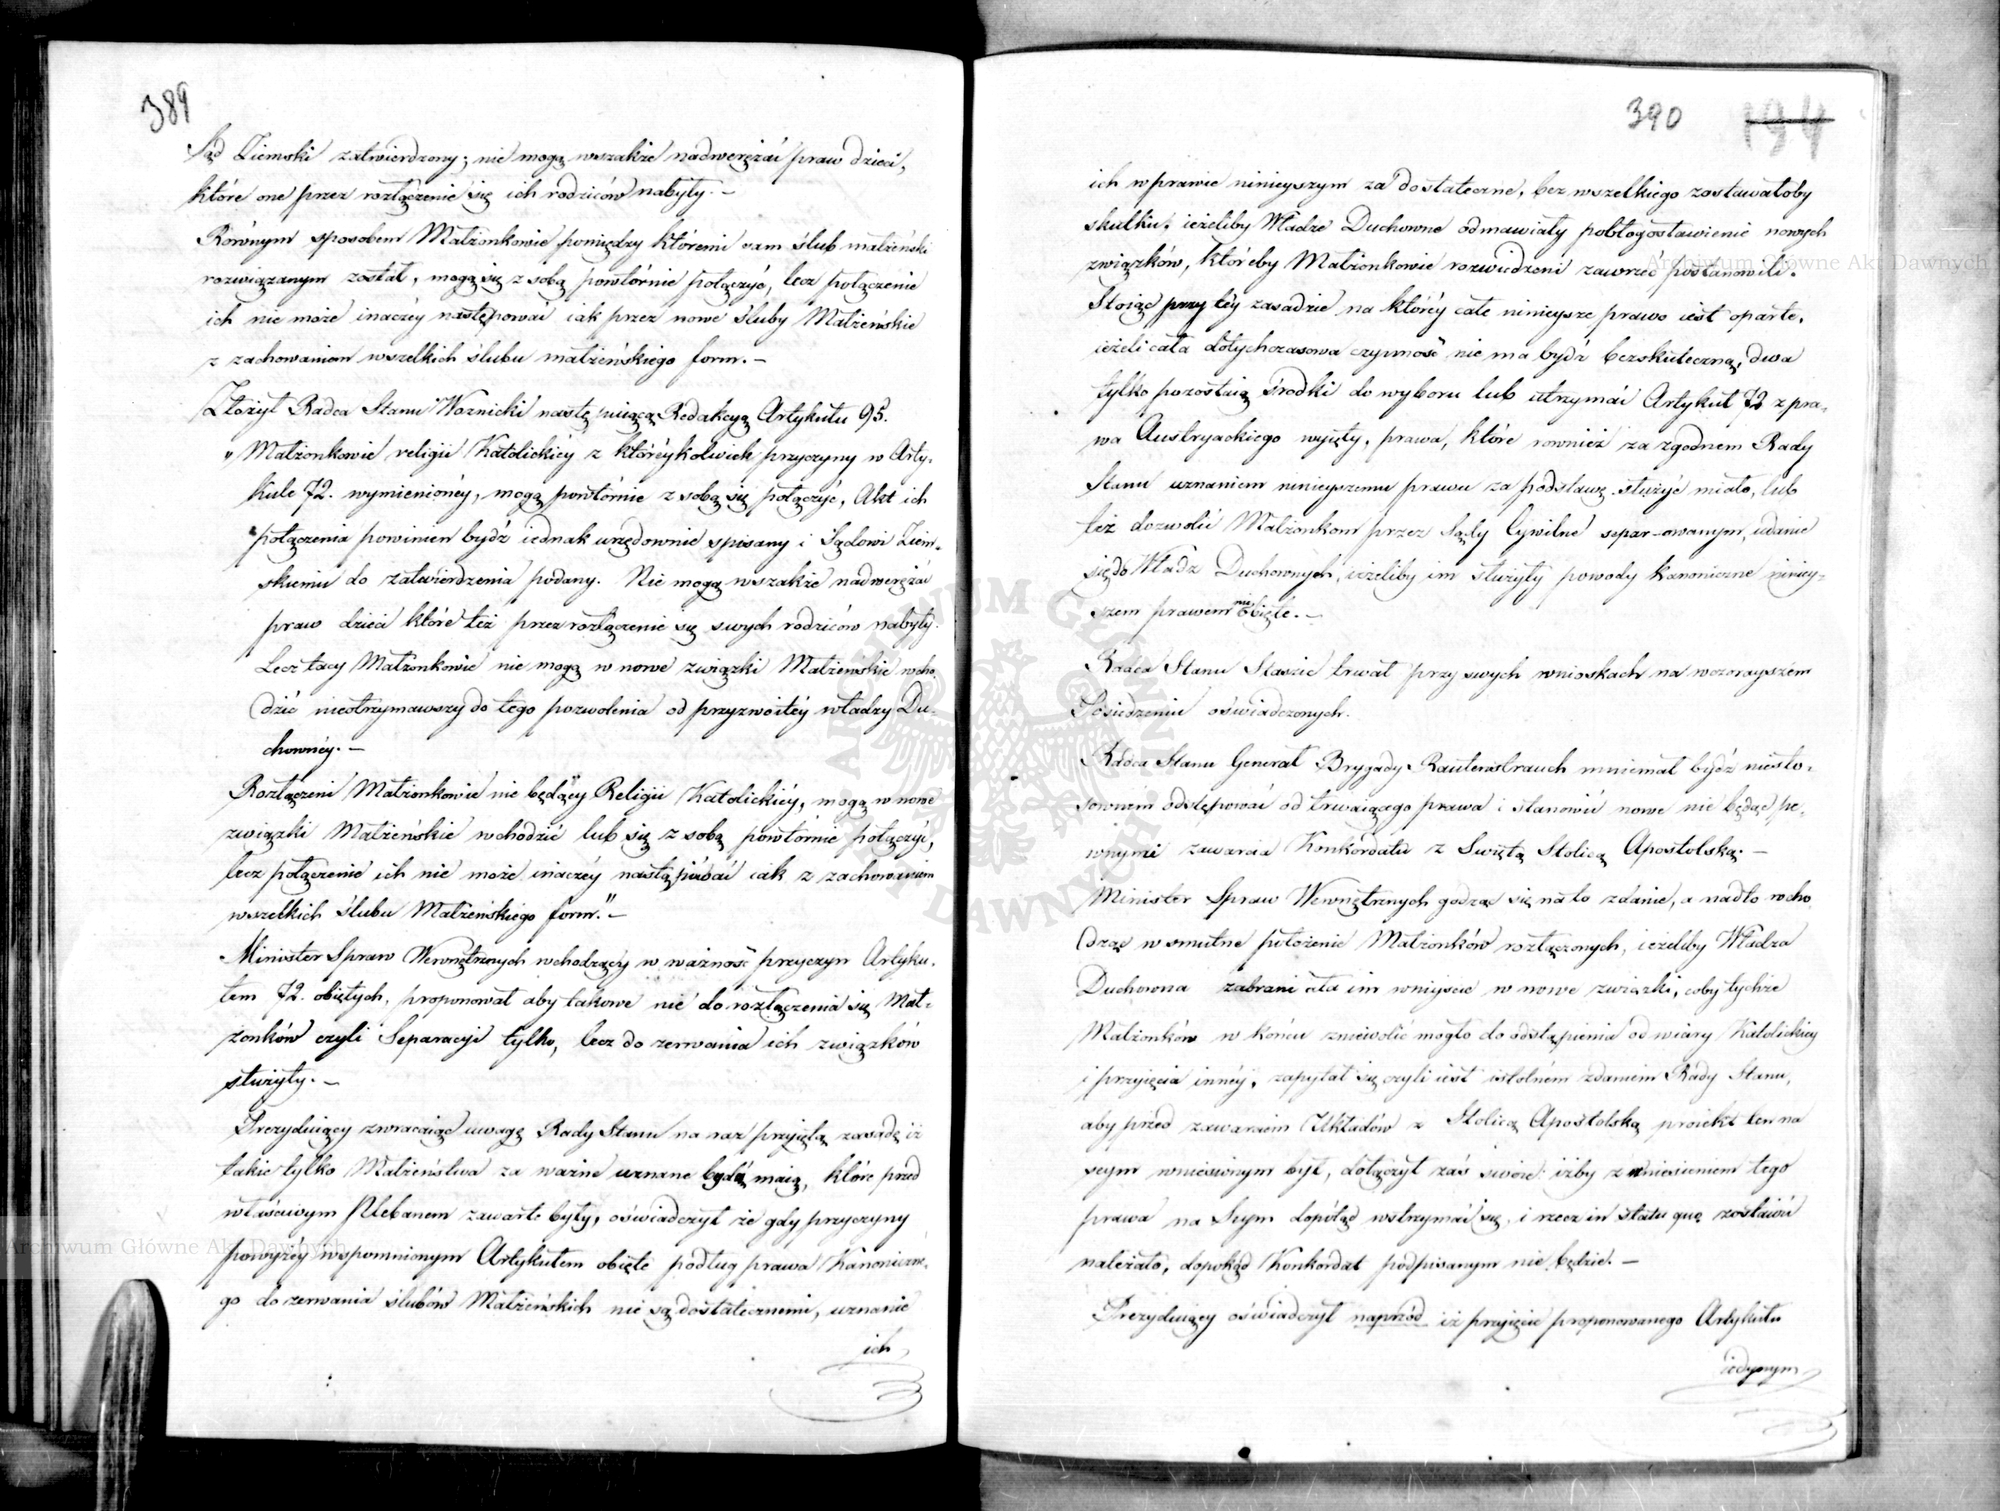 389
Sąd Ziemski zatwierdzony; nie mogą wszakże nadwerężać praw dzieci,
które one przez rozłączenie się ich rodziców nabyły. —
Równym sposobem Małżonkowie pomiędzy któremi sam ślub małżeński
rozwiązanym został, mogą się z sobą powtórnie połączyć, lecz połączenie
ich nie może inaczéy następować iak przez nowe śluby Małżeńskie
z zachowaniem wszelkich ślubu małżeńskiego form. —
Złożył Radca Stanu Woznicki następuiącą Redakcyą Artykułu 95.
„Małżonkowie religii Katolickiéy z któréykolwiek przyczyny w Arty-
kule 72. wymienionéy, mogą powtórnie z sobą się połączyć, Akt ich
połączenia powinien bydź iednak urzędownie spisany i Sądowi Ziem-
skiemu do zatwierdzenia podany. Nie mogą wszakże nadwerężać
praw dzieci które też przez rozłączenie się swych rodziców nabyły.
Lecz tacy Małżonkowie nie mogą w nowe związki Małżeńskie wcho-
dzić nieotrzymawszy do tego pozwolenia od przyzwoitéy władzy Du-
chownéy. —
Rozłączeni Małżonkowie nie będący Religii Katolickiéy, mogą w nowe
związki Małżeńskie wchodzić lub się z sobą powtórnie połączyć,
lecz połączenie ich nie może inaczéy nastąpić iak z zachowaniem
wszelkich ślubu Małżeńskiego form." —
Minister Spraw Wewnętrznych wchodzący w ważność przyczyn Artyku-
łem 72. obiętych, proponował aby takowe nie do rozłączenia się Mał-
żonków czyli Separacyi tylko, lecz do zerwania ich związków
służyły. —
Prezyduiący zwracaiąc uwagę Rady Stanu na raz przyiętą zasadę iż
takie tylko Małżeństwa za ważne uznane bydź maią, które przed
właściwym Plebanem zawarte były, oświadczył że gdy przyczyny
powyżéy wspomnionym Artykułem obięte podług prawa Kanoniczne-
go do zerwania ślubów Małżeńskich nie są dostatecznemi, uznanie
ich
390 194
ich w prawie ninieyszym za dostateczne, bez wszelkiego zostawałoby
skutku, ieżeliby Władze Duchowne odmawiały pobłogosławienie nowych
związków, któreby Małżonkowie rozwiedzeni zawrzeć postanowili.
Stoiąc przy téy zasadzie na któréy całe ninieysze prawo iest oparte,
ieżeli cała dotychczasowa czynność nie ma bydź bezskuteczną, dwa
tylko pozostaią środki do wyboru lub utrzymać Artykuł 72 z pra-
wa Austryackiego wyięty, prawa, które również za zgodnem Rady
Stanu uznaniem ninieyszemu prawu za podstawę służyć miało, lub
też dozwolić Małżonkom przez Sądy Cywilne separowanym, udanie
się do Władz Duchownych, ieżeliby im służyły powody kanoniczne niniey-
szem prawem nie obięte. —
Radca Stanu Staszic trwał przy swych wnioskach na wczorayszém
Posiedzeniu oświadczonych.
Radca Stanu Generał Brygady Rautenstrauch mniemał bydź niesto-
sowném odstępować od trwaiącego prawa i stanowić nowe nie będąc pe-
wnymi zawarcia Konkordatu z Swiętą Stolicą Apostolską. —
Minister Spraw Wewnętrznych godząc się na to zdanie, a nadto wcho-
dząc w smutne położenie Małżonków rozłączonych, ieżeliby Władza
Duchowna zabraniała im wniyście w nowe związki, coby tychże
Małżonków w końcu zniewolić mogło do odstąpienia od wiary Katolickiey
i przyięcia innéy, zapytał się czyli iest istotném zdaniem Rady Stanu,
aby przed zawarciem Układów z Stolicą Apostolską proiekt ten na
seym wniesionym był, dołączył zaś swoie: iżby z wniesieniem tego
prawa na Seym dopótąd wstrzymać się, i rzecz in statu quo zostawić
należało, dopokąd Konkordat podpisanym nie będzie. —
Prezyduiący oświadczył naprzód iż przyięcie proponowanego Artykułu
iedynym
Archiwum Główne Akt Dawnych
Archiwum Główne Akt Dawnych
ARCHIWUM GŁÓWNE AKT DAWNYCH